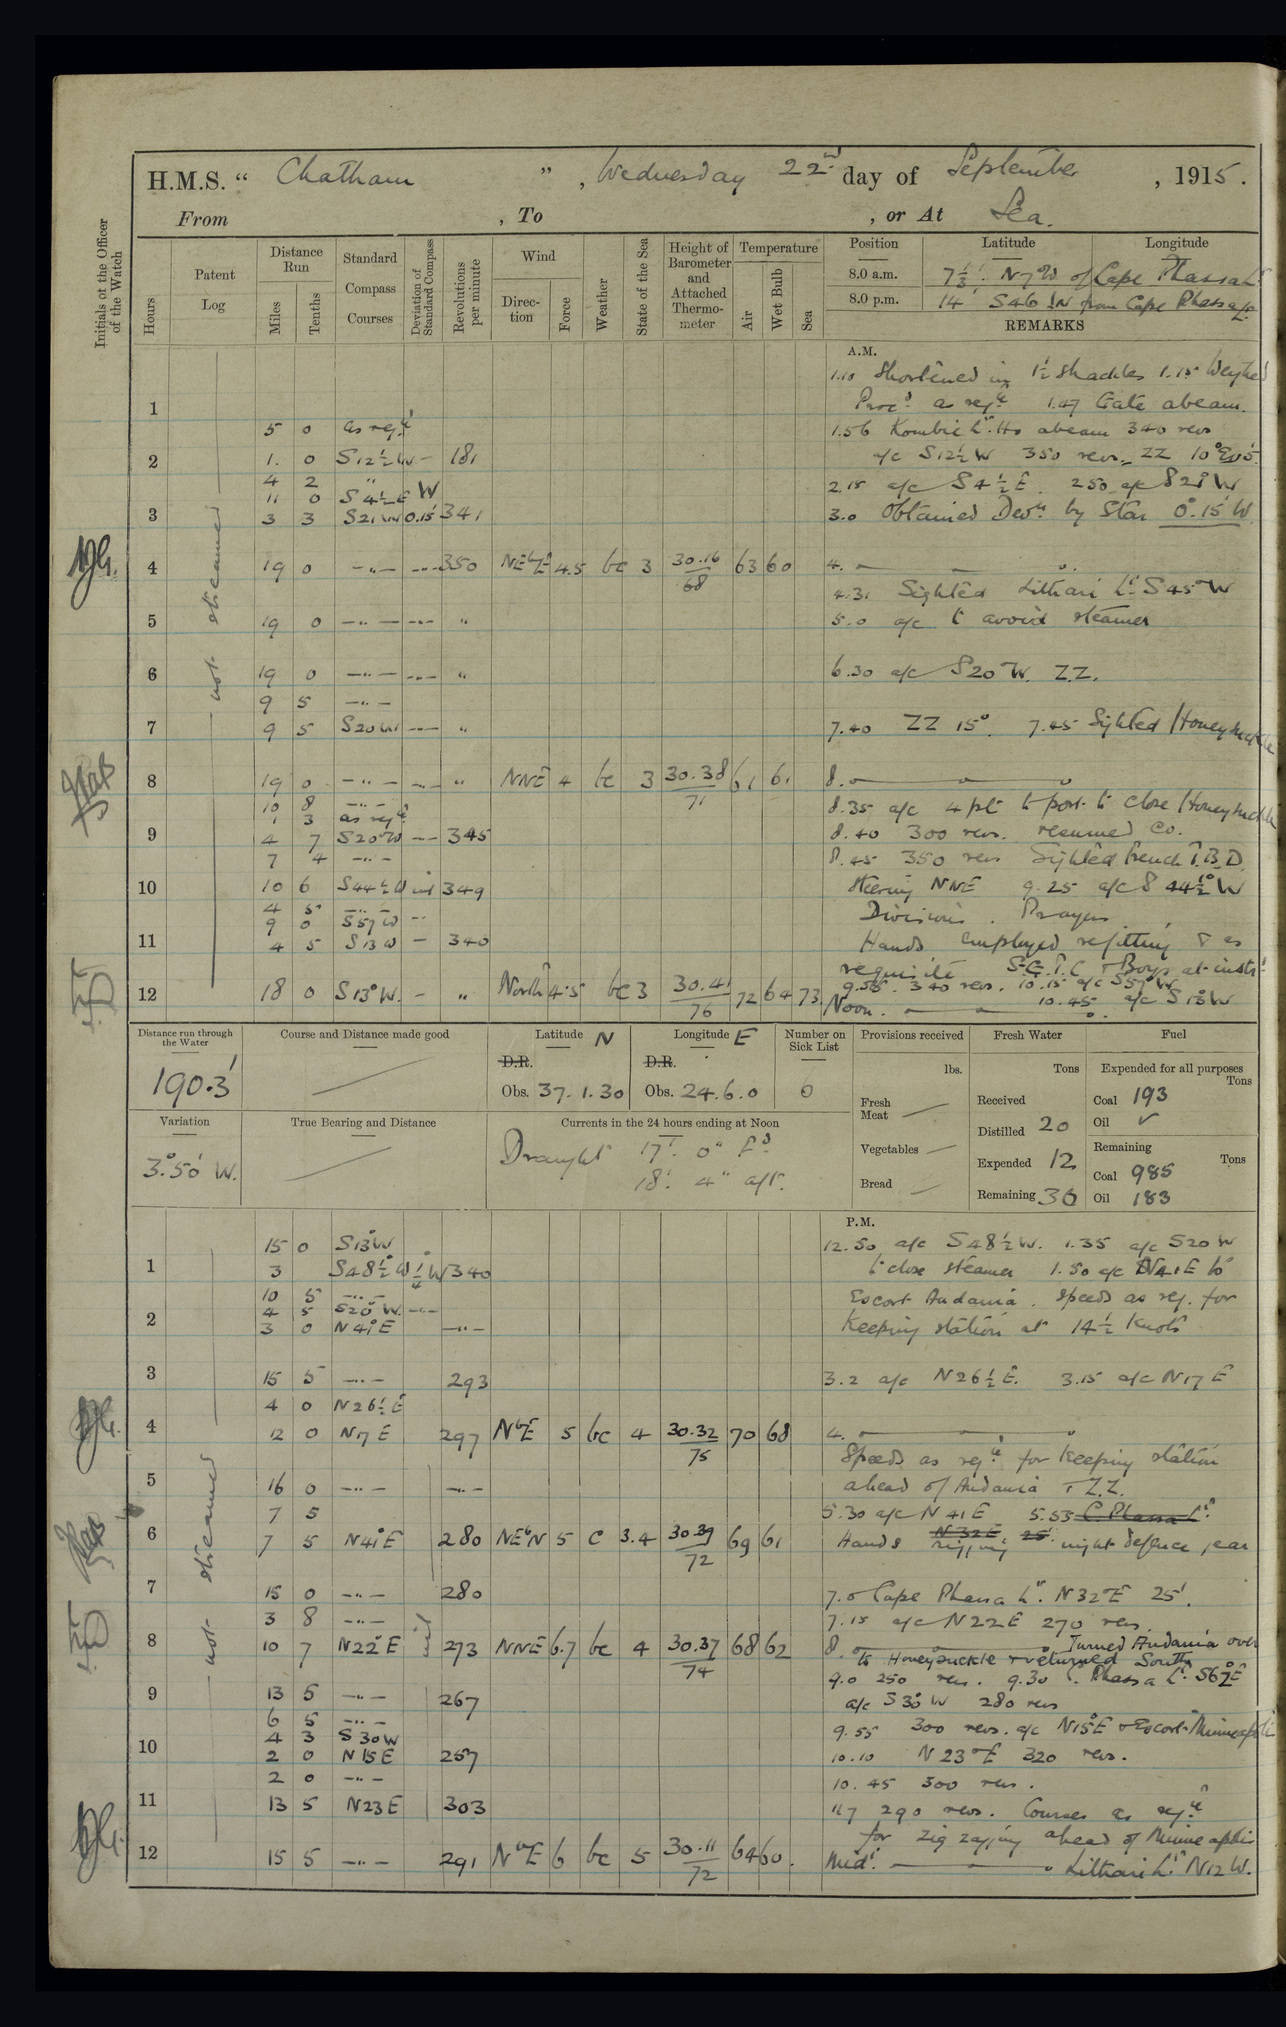 H.M.S. “ Chatham ” , Wednesday 22nd day of September , 1915.
From , To , or At Sea.
Initials of the Officer of the Watch
Hours
Patent Log
Distance Run
Miles
Tenths
Standard Compass Courses
Deviation of Standard Compass
Revolutions per minute
Wind
Direction
Force
Weather
State of the Sea
Height of Barometer and Attached Thermometer
Temperature
Air
Wet Bulb
Sea
Position Latitude Longitude
8.0 a.m. N 7° W of Cape
8.0 p.m. 14' S46 W from Cape
REMARKS
A.M.
1.10 Shortened in 1½ shackles 1.15 Weighed
1 Procd as reqte 1.47 Gate abeam.
5 0 as reqte 1.56 Kombi Lt. Ho abeam 340 revs
2 1. 0 S12½W – 181 a/c S12½W 350 revs. ZZ 10°
4 2 " 2.15 a/c S4½E. 2.50 a/c S21°W
11 0 S4½E W
3 3 3 S21W 0.15' 341 3.0 Obtained Devn. by Star 0°.15'W.
4 19 0 –"– –"– 350 NEbE 4.5 bc 3 30.16/68 63 60 4.
4.31 Sighted Lithari Lt. S45W
5 19 0 –"– –"– " 5.0 a/c to avoid steamer
not streamed
6 19 0 –"– –"– " 6.30 a/c S20W. Z.Z.
9 5 –"–
7 9 5 S20W –"– " 7.40 ZZ 15°. 7.45 Sighted Honeysuckle
8 19 0 –"– –"– " NNE 4 bc 3 30.38/71 61 61 8.
10 8 –"– 8.35 a/c 4 pts to port to close Honeysuckle
1 3 as reqte
9 4 7 S20°W –– 345 8.40 300 revs. resumed Co.
7 4 –"– 8.45 350 revs Sighted French T.B.D.
10 10 6 S44½W nil 349 steering NNE 9.25 a/c S 44½°W
4 5 –"– Divisions. Prayers
9 0 S57W –"
11 4 5 S13W – 340 Hands employed refitting & as
requisite S.G. P.C & Boys at instn
9.55. 340 revs. 10.15 a/c S57°W
12 18 0 S13°W. – " North 4.5 bc 3 30.41/76 72 64 73 Noon. 10.45 a/c S13°W
Distance run through the Water
190.3'
Course and Distance made good
Latitude N
D.R.
Obs. 37.1.30
Longitude E
D.R.
Obs. 24.6.0
Number on Sick List
0
Provisions received
lbs.
Fresh Meat –
Vegetables –
Bread –
Fresh Water
Tons
Received
Distilled 20
Expended 12
Remaining 36
Fuel
Expended for all purposes
Tons
Coal 193
Oil ✓
Remaining
Tons
Coal 985
Oil 183
Variation
3°.50' W.
True Bearing and Distance
Currents in the 24 hours ending at Noon
Draught 17'. 0" Fd
18'. 4" aft.
P.M.
15 0 S13°W 12.50 a/c S48½W. 1.35 a/c S20W
1 3 S48½W ¼W 340 to close steamer 1.50 a/c N41E to
10 5 –"– Escort Andania. Speeds as req. for
4 5 S20°W. –"–
2 3 0 N41°E –"– Keeping station at 14½ knots
3 15 5 –"– 293 3.2 a/c N26½E. 3.15 a/c N17E
4 0 N26½E
4 12 0 N17E 297 NbE 5 bc 4 30.32/75 70 68 4.
Speeds as reqte for keeping station
5 16 0 –"– –"– ahead of Andania & Z.Z.
not streamed
7 5 5.30 a/c N41E 5.53 C Plassa Lt.
N32E 25'.
6 7 5 N41°E 280 NEbN 5 c 3.4 30.39/72 69 61 Hands rigging night defence gear
7 15 0 –"– 280 7.0 Cape Lt. N32°E 25'.
3 8 –"– 7.15 a/c N22E 270 revs.
8 10 7 N22°E 273 NNE 6.7 bc 4 30.37/74 68 62 8. Turned Andania over
to Honeysuckle & returned South
9.0 250 revs. 9.30 C. Lt. S62°E
9 13 5 –"– 267 a/c S30°W 280 revs
6 5 –"– 9.55 300 revs. a/c N15°E & Escort
4 3 S30W
10 2 0 N15E 257 10.10 N23°E 320 revs.
2 0 –"– 10.45 300 revs.
11 13 5 N23E 303 11.7 290 revs. Courses as reqte
for zig zagging ahead of
12 15 5 –"– 291 NbE 6 bc 5 30.11/72 64 60. Midt. Lithari Lt. N12W.